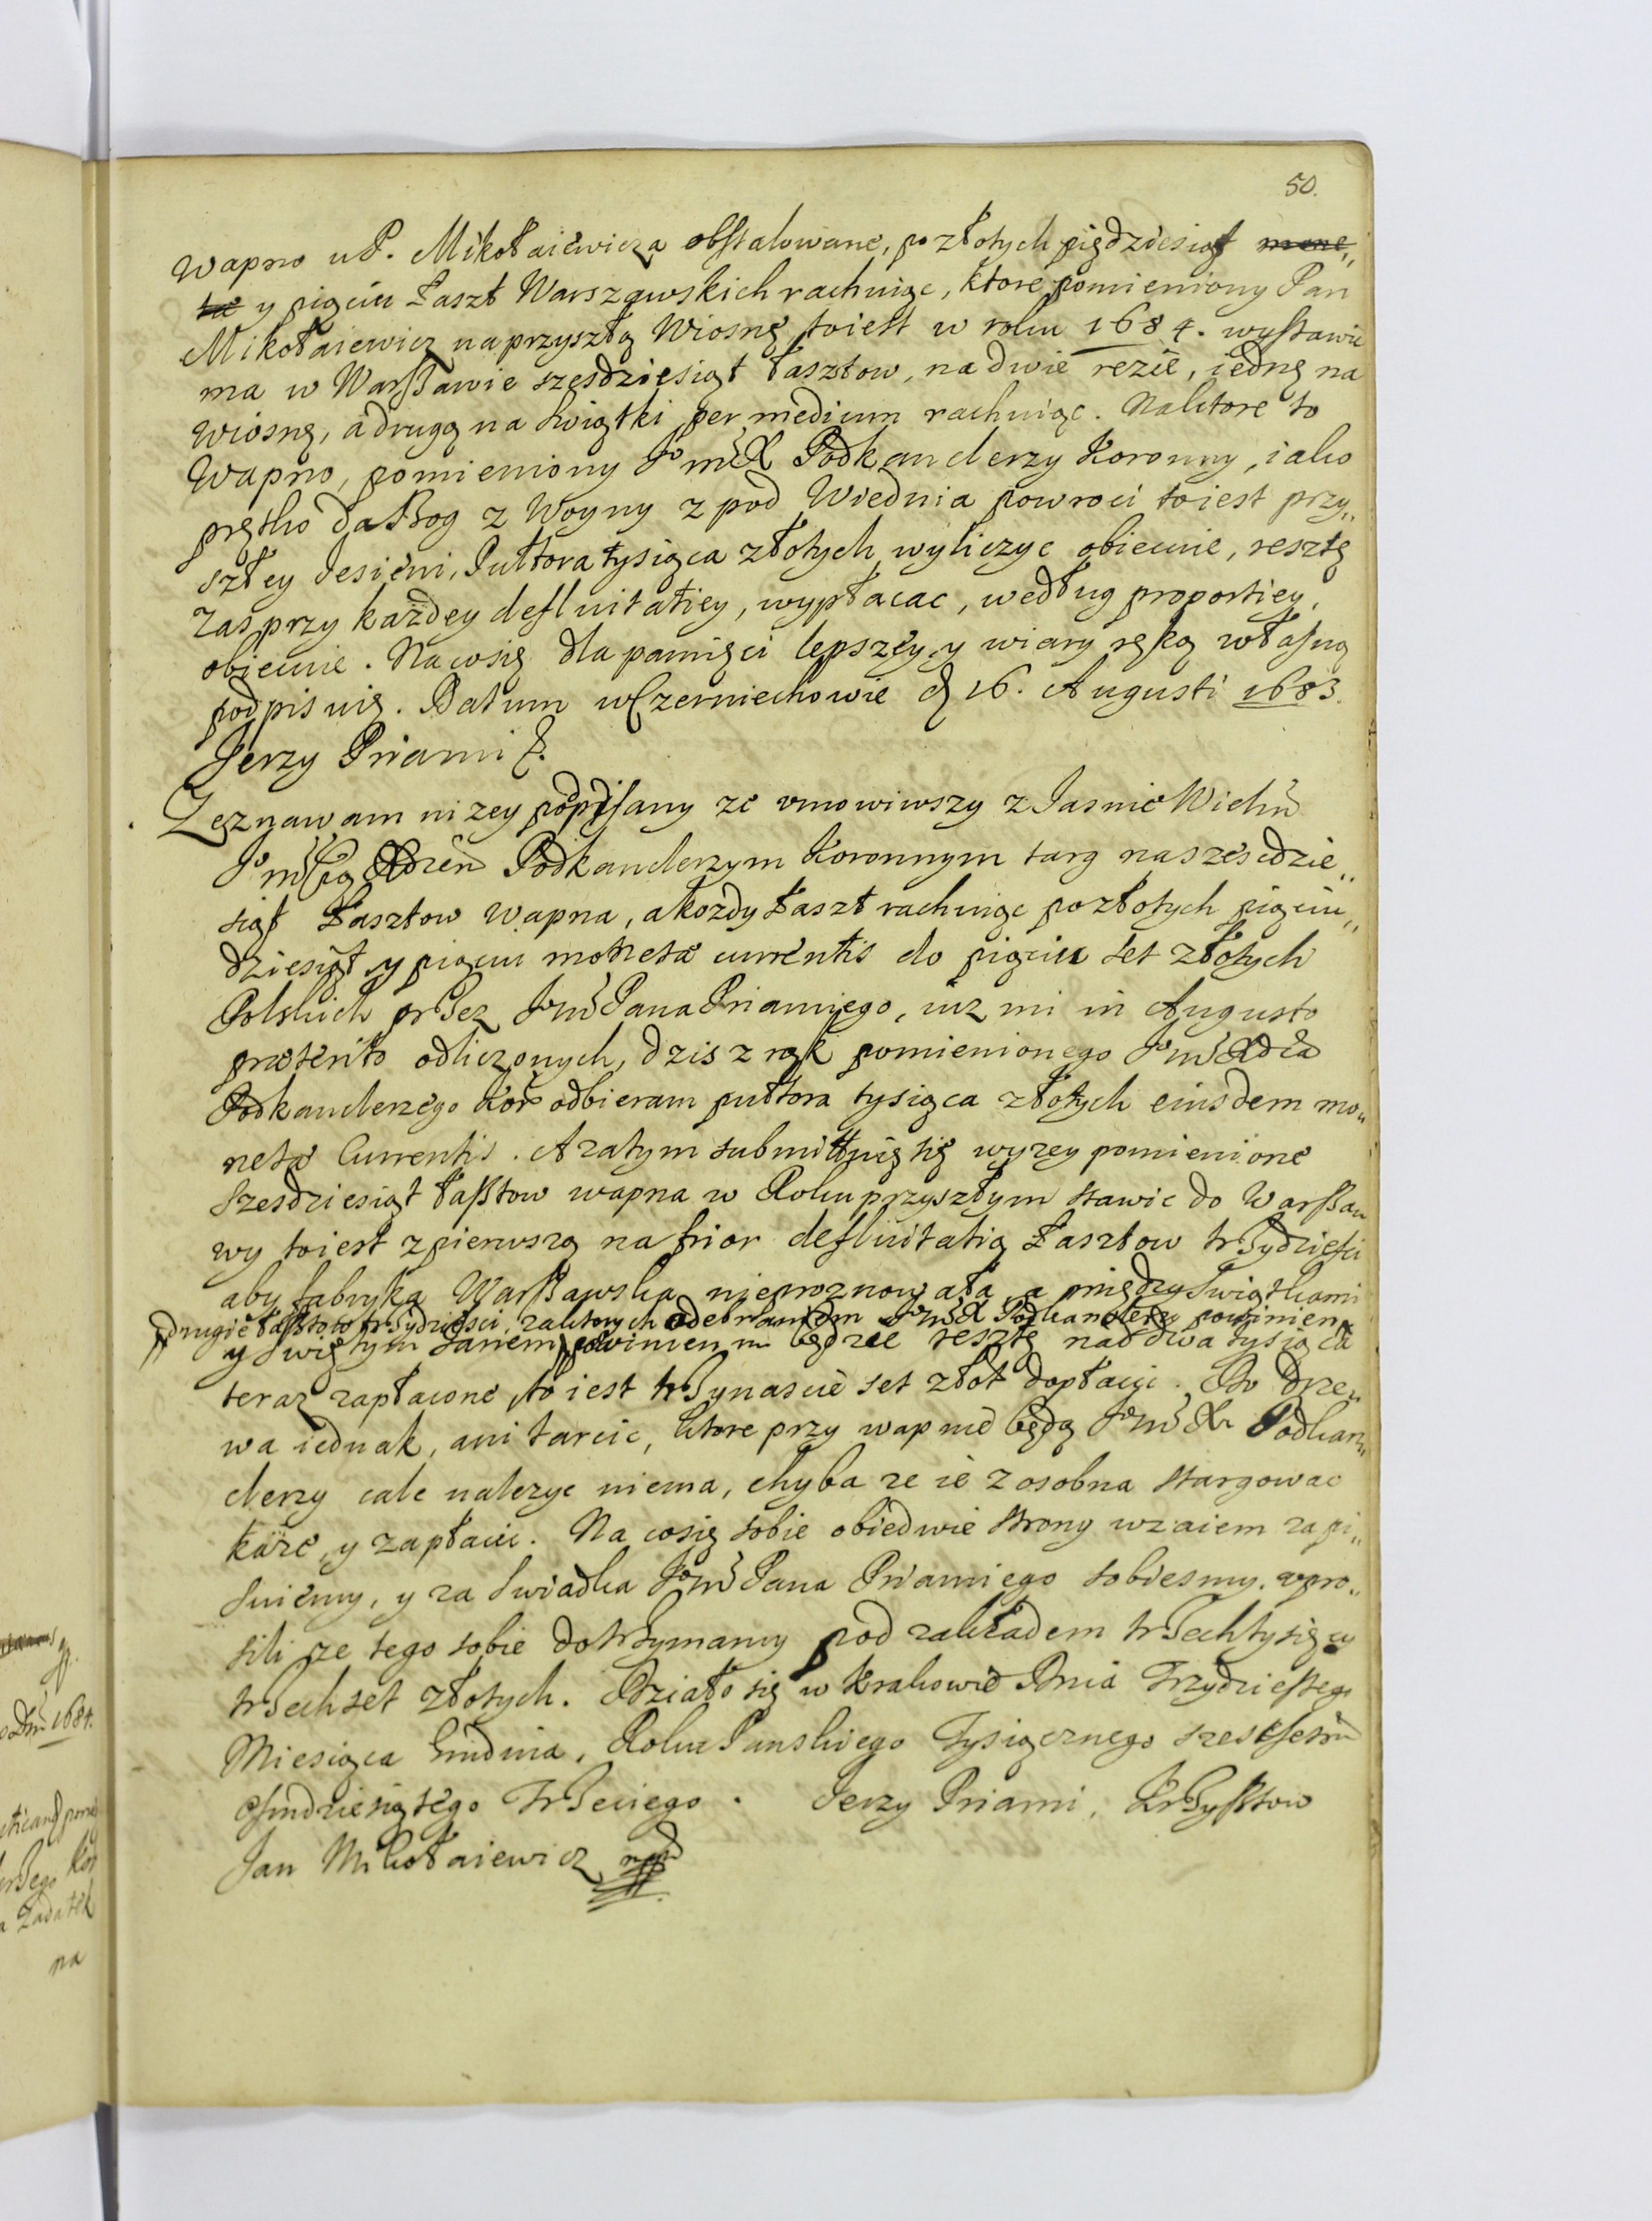 50.
Wapno u P. Mikołaiewicza obstalowane, po złotych piędziesiąt mone„
tæ y pięciu Łaszt Warszawskich rachuiąc, ktore pomieniony Pan
Mikołaiewicz na przyszłą Wiosnę toiest w roku 1684. wystawic
ma w Warszawie szesdziesiąt łasztow, na dwie rezie, iednę na
wiosnę, a drugą na swiątki per medium rachuiąc. Na ktore to
Wapno, pomieniony Jº mć X Podkanclerzy Koronny, iako
prętko da Bog z Woyny z pod Wiednia powroci toiest przy„
szłey Jesieni, Pułtora tysiąca złotych wyliczyc obiecuie, resztę
zas przy każdey defluitatiey, wypłacac, według proportiey,
obiecuie. Na co się dla pamięci lepszey y wiary ręką własną
podpisuię. Datum w Czerniechowie d 16. Augusti 1683.
Jerzy Priami
Zeznawam nizey podpisany ze umowiwszy z Jasnie Wielm̃
Jº mćią Xdzem Podkanclerzym Koronnym targ na szescdzie„
siąt Łasztow wapna, a kozdy Łaszt rachuiąc po złotych pięciu„
dziesiąt y pięciu monetæ currentis do pięciu set złotych
Polskich przez Jº mć Pana Priamiego, iuz mi in Augusto
præterito odliczonych, dzis z rąk pomienionego Jº mć Xdza
Podkanclerzego Kor odbieram pułtora tysiąca złotych eiusdem mo„
netæ Currentis. A zatym submittuię się wyzey pomienione
szesdziesiąt łasztow wapna w Roku przyszłym stawic do Warsza„
wy toiest z pierwszą na frior defluitatią Łasztow trzydziesci
aby fabryka Warszawska nieproznowała, a między Swiątkami
drugie łasztow trzydziesci, za ktorych odebraniem Jº mć X Podkanclerzy powinien
y Swiętym Janem powinien m będzie resztę nad dwa tysiąca
teraz zapłacone, to iest trzynascie set złot dopłacic. Do drze„
wa iednak, ani tarcic, ktore przy wapnie będą Jº mć X Podkan„
clerzy cale nalezyc niema, chyba ze ie z osobna stargowac
każe, y zapłacic. Na co się sobie obiedwie strony wzaiem zapi„
suiemy, y za swiadka Jº mć Pana Priamiego sobiesmy upro„
sili ze tego sobie dotrzymamy pod zakładem trzech tysięcy
trzech set złotych. Działo się w Krakowie Dnia Trzydziestego
Miesiąca Grudnia, Roku Panskiego Tysiącznego szescsetnº
osmdziesiątego Trzeciego. Jerzy Priami, Krzysztow
Jan Mikołaiewicz mpp